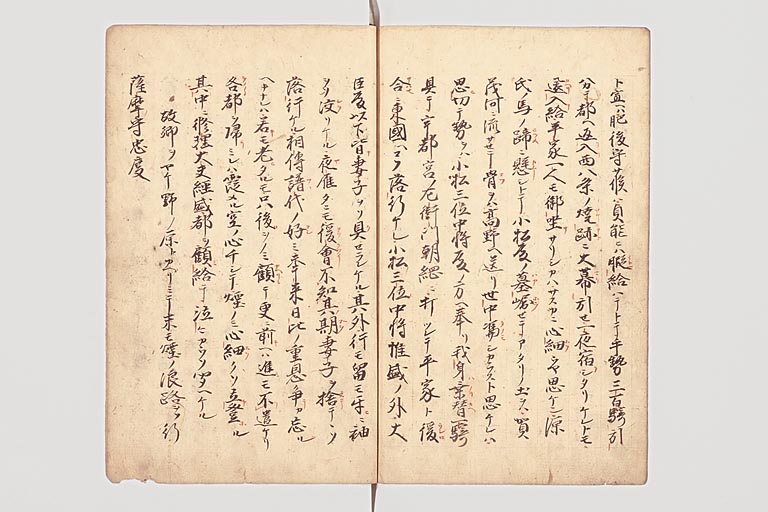 ト宣ハ肥後守貞能ニ賜給ハントテ平勢三百騎引
分テ都ヘ返入西八条ノ焼跡ニ大幕引セ一夜宿シタリケレトモ
還入給平家一人モ御坐サリシカハサスカニ心細クヤ思ケン源
氏ノ馬ノ蹄ニ懸シトテ小松殿ノ墓堀セテアタリノ土ヲハ賀
茂河ニ流サセテ骨ヲハ高野ヘ送リ世中憑シカラスト思ケレハ
思切テ勢ヲハ小松三位中将殿ノ方ヘ奉リ我身乗替一騎
具テ宇都宮ノ左衛門朝綱ニ打ツレテ平家ト後
合ニ東國ヘコソ落行ケレ小松三位中将惟盛ノ外ハ大
臣殿以下皆妻子ヲソ具セラレケル其外行モ留モ互ニ袖
ヲソ汶リケル夜雁タニモ後會不知其期妻子ヲ捨テソ
落行ケル相傳譜代ノ好ミ年来日比ノ重恩争カ忘ル
ヘキナレハ若モ老タルモ只後ヲノミ顧テ更ニ前ヘハ進モ不遣ケリ
各都ヲ帰ミレハ霞メル空ノ心チシテ煙ノミ心細クソ立登ル
其中ニ修理大夫経盛都ヲ顧給テ泣々カウソ宣ヘケル
故郷ヲヤケ野ノ原トカヘリミテ末モ煙ノ浪路ヲソ行
薩摩守忠度